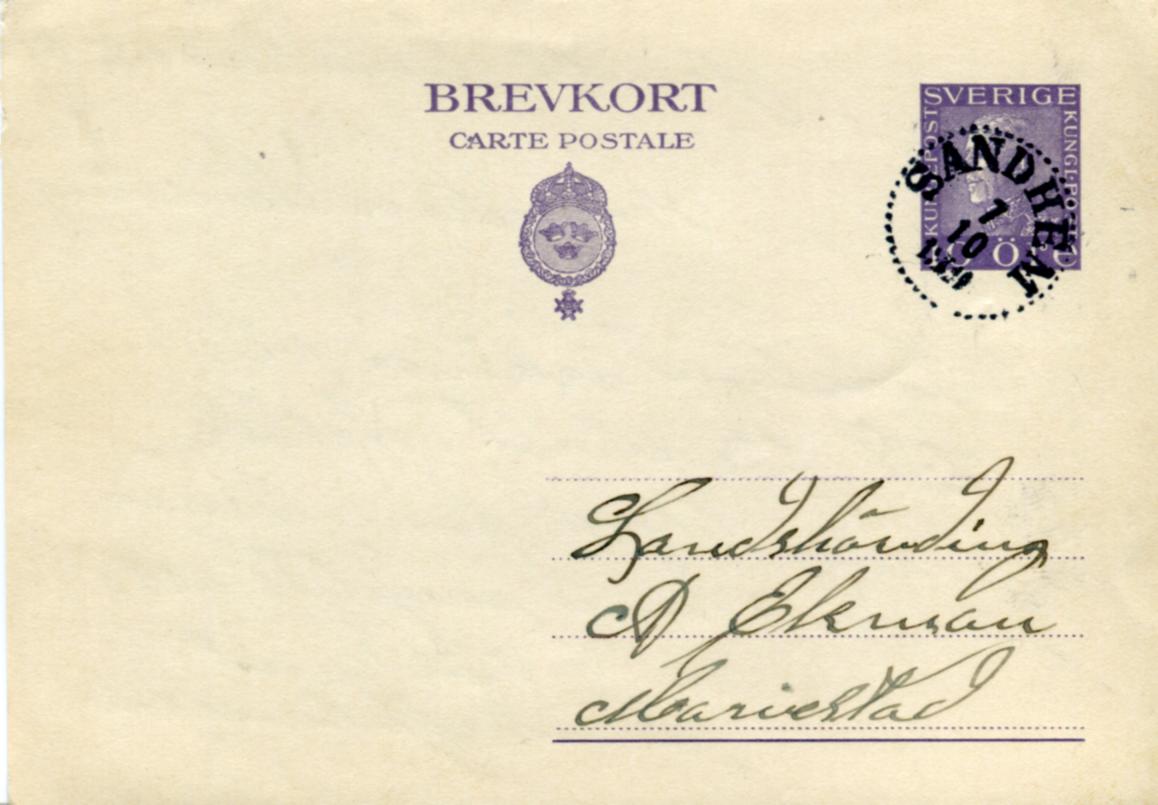 BREVKORT
CARTE POSTALE
SVERIGE
KUNGL·POST
SANDHEM
7
10
ÖRE
Landshövding
A Ekman
Mariestad